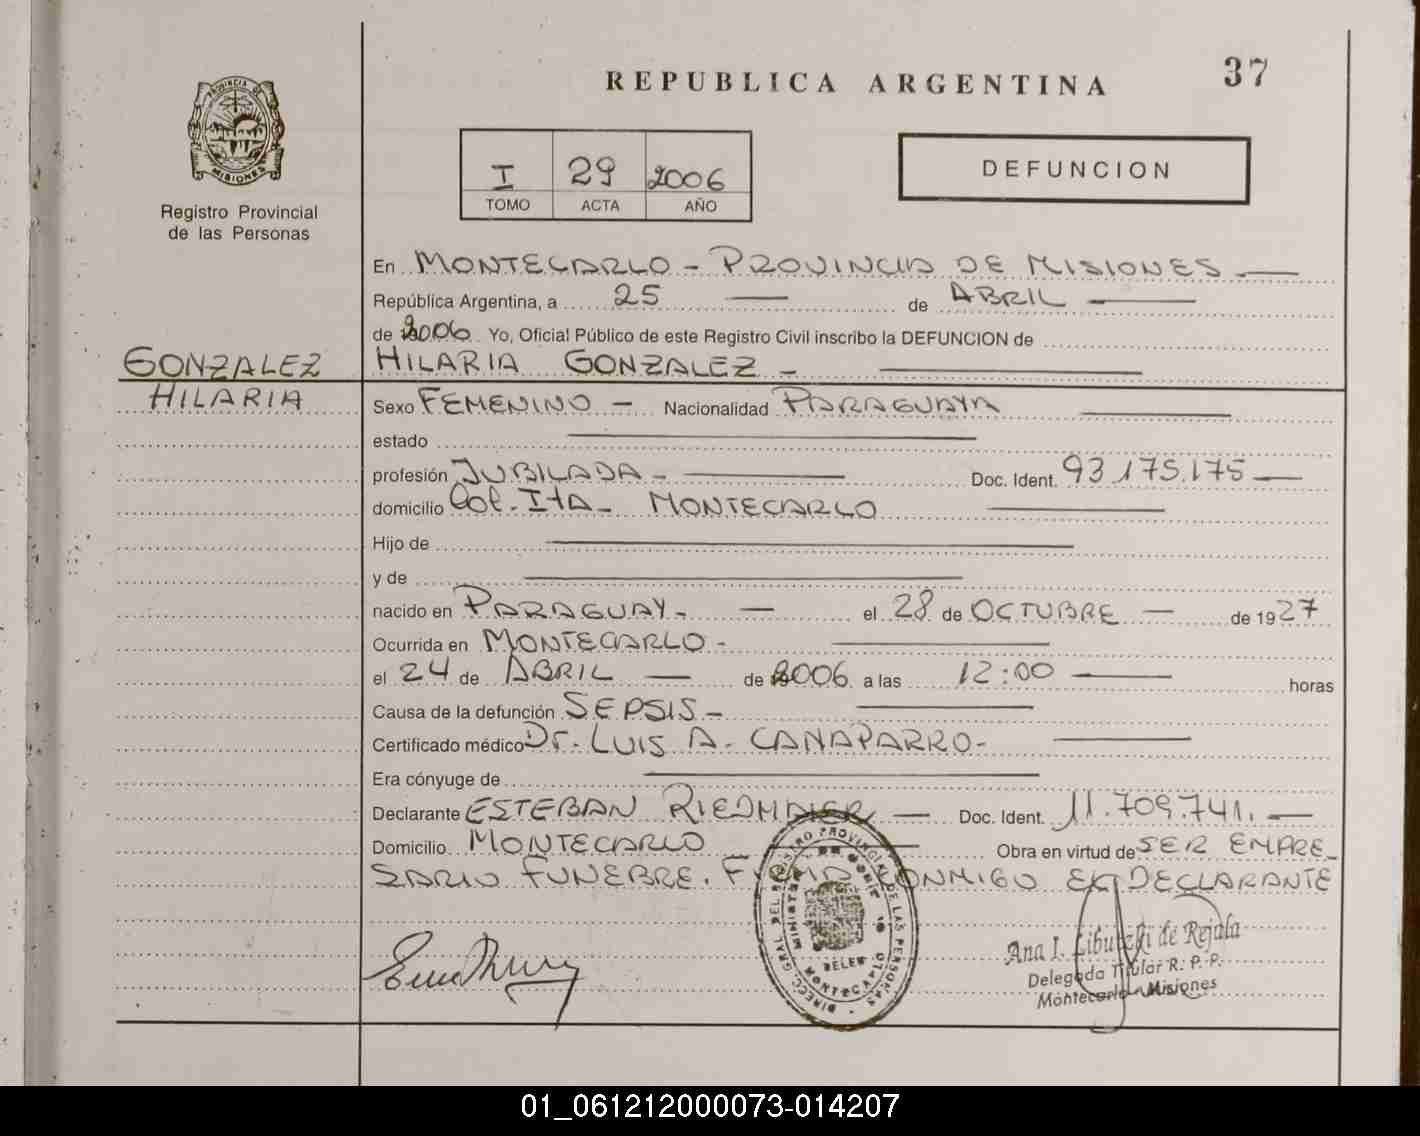 REPUBLICA ARGENTINA
37
PROVINCIA DE
MISIONES
Registro Provincial
de las Personas
I 29 2006
TOMO ACTA AÑO
DEFUNCION
En MONTECARLO - PROVINCIA DE MISIONES
República Argentina, a 25 de ABRIL
de 2006 Yo, Oficial Público de este Registro Civil inscribo la DEFUNCION de
GONZALEZ
HILARIA
HILARIA GONZALEZ -
Sexo FEMENINO - Nacionalidad PARAGUAYA
estado
profesión JUBILADA - Doc. Ident. 93.175.175
domicilio Col. Ita - MONTECARLO
Hijo de
y de
nacido en PARAGUAY - el 28 de OCTUBRE de 1927
Ocurrida en MONTECARLO -
el 24 de ABRIL de 2006 a las 12:00 horas
Causa de la defunción SEPSIS -
Certificado médico Dr. LUIS A. CANAPARRO -
Era cónyuge de
Declarante ESTEBAN RIEDMAIER Doc. Ident. 11.709.741.
Domicilio MONTECARLO Obra en virtud de SER EMPRE_
SARIO FUNEBRE. FIRMA CONMIGO EL DECLARANTE
DIRECC. GRAL. DEL REGISTRO PROVINCIAL DE LAS PERSONAS
MONTECARLO
Ana I. de Rejala
Delegada Titular R. P. P.
Montecarlo - Misiones
01_061212000073-014207